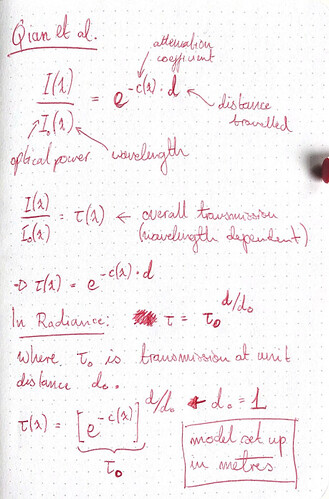 Qian et al.
attenuation
coefficient
I(λ) / I₀(λ) = e^{-c(λ)·d}
distance
travelled
optical power
wavelength
I(λ) / I₀(λ) = τ(λ) ← overall transmission
(wavelength dependent)
→ τ(λ) = e^{-c(λ)·d}
In Radiance: τ = τ₀^{d/d₀}
Where τ₀ is transmission at unit
distance d₀.
τ(λ) = [e^{-c(λ)}]^{d/d₀} ← d₀ = 1
τ₀
model set up
in metres